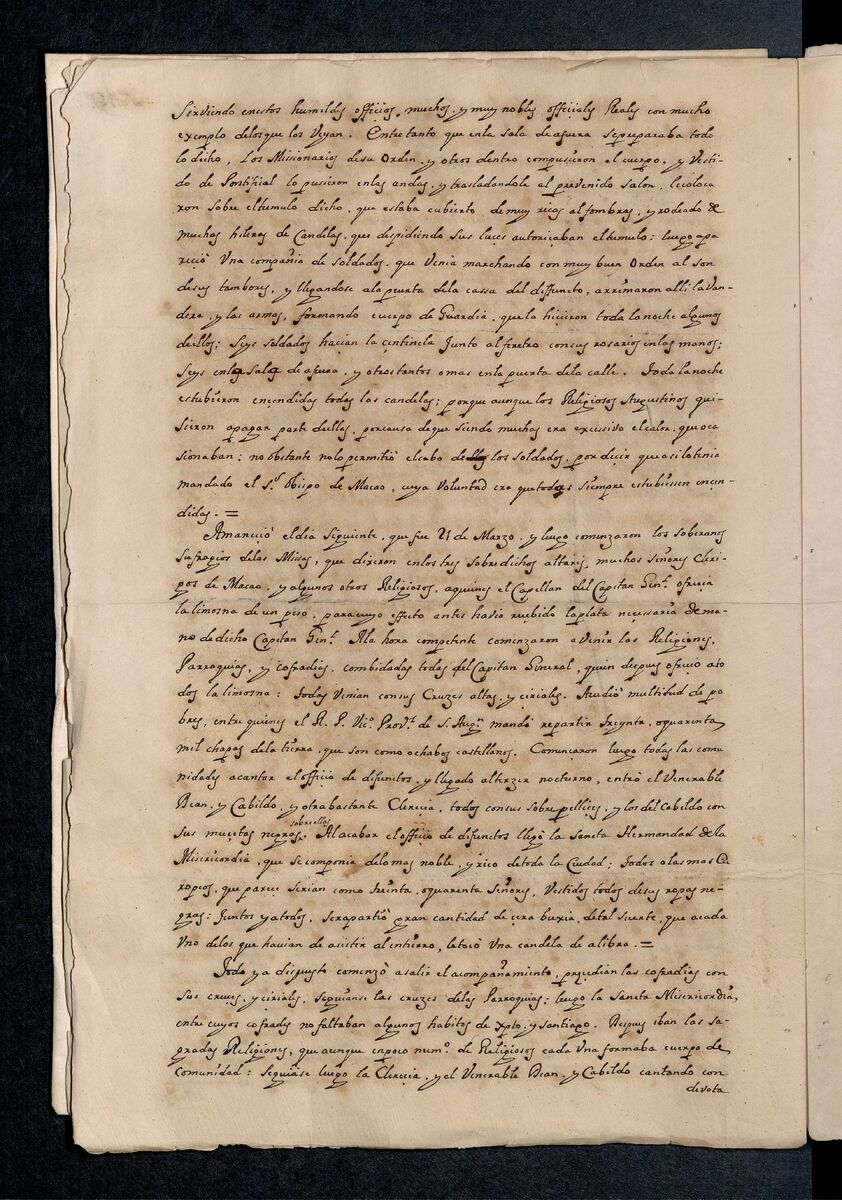 Sirviendo enestos humildes officios, muchos, y muy nobles officiales Reales con mucho
exemplo delosque los Veyan. Entretanto que enla sala de afuera sepreparaba todo
lo dicho, Los Missionarios desu Orden, y otros dentro compusieron el cuerpo, y Vesti-
do de Pontifical lo pusieron enlas andas, y trasladandole al prevenido salon, lecoloca
ron sobre eltumulo dicho, que estaba cubierto demuy ricos alfombras, y rodeado de
muchas hileras de Candelas, que despidiendo sus luces autoriçaban eltumulo: luego apa
recio Una compañia de soldados, que Venia marchando con muy buen Orden al son
desus tambores, y llegandose ala puerta dela cassa del diffuncto, arrimaron alli la Van-
dera, y las armas, formando cuerpo de Guardia, que la hicieron toda lanoche algunos
dellos; Seys soldados hacian la centinela Junto al feretro consus rosarios enlas manos;
Seys enlas Salas de afuera, y otrostantos omas enla puerta dela calle. Toda lanoche
estubieron encendidas todas las candelas; porque aunque los Religiosos Augustinos qui-
sieron apagar parte dellas, porcausa deque siendo muchas era excessivo elcalor, que oca
sionaban: no obstante nolo permitiò elcabo de los soldados, por decir que asi lotenia
mandado el Sr. Obispo de Macao, cuya Voluntad era que todas siempre estubiessen encen-
didas. =
Amaneciò eldia siguiente, que fue 21 de Marzo, y luego comenzaron los soberanos
sufragios delas Missas, que dixeron enlos tres sobredichos altares, muchos Señores Cleri-
gos de Macao, y algunos otros Religiosos, aquienes el Capellan del Capitan Genl. ofrecia
la limosna de un peso, paracuyo effecto antes havia recebido laplata necessaria dema-
no dedicho Capitan Genl. Ala hora competente comenzaron avenir las Religiones,
Parroquias, y cofradias, combidadas todas del Capitan General, quien despues ofreciò ato
dos la limosna: Todas Venian consus Cruzes altas, y ciriales. Acudiò multitud de po
bres, entre quienes el R. P. Vico. Provl. de S. Augn. mandò repartir treynta, oquarenta
mil chapas dela tierra, que son como ochabos castellanos. Començaron luego todas las comu
nidades acantar el officio de difunctos, y llegado altercer nocturno, entrò el Venerable
Dean, y Cabildo, y otra bastante Clerecia, todos consus sobrepellices, y los del Cabildo con
sus mucetas negras sobre ellos. Al acabar el officio de difunctos llegò la Sancta Hermandad dela
Misericordia, que se componia delomas noble, y rico detoda la Ciudad; todos olas mas Eu
ropeos, que parece serian como treinta, oquarenta Señores, Vestidos todos desus ropas ne-
gras: Juntos yatodos, serapartiò gran cantidad de cera buxia, detal suerte, que acada
Uno delos que havian de asistir al entierro, letocò Una candela de alibra. =
Todo ya dispuesto comenzò asalir el acompañamiento, precedian las cofradias con
sus cruces, y ciriales, seguianse las cruzes delas Parroquias; luego la Sancta Misericordia,
entre cuyos cofrades nofaltaban algunos habitos de Xpto. y santiago. Despues iban las sa-
gradas Religiones, que aunque enpoco numo. de Religiosos cada Una formaba cuerpo de
Comunidad: seguiase luego la Clerecia, y el Venerable Dean, y Cabildo cantando con
devota